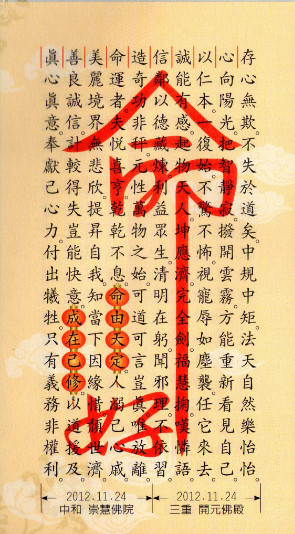 存心無欺。不失於道矣。中規中矩。法天自然樂怡怡
心向陽光。把智靜寂。撥開雲霧。方能重新看見自己
以仁本一復始。不驚不怖。視寵辱如塵襲。任它來去
誠能有感。起物天人坤應濟。完全劍福慧。掬嘆憐語
信鄰以德藏。煉利益眾生。清明在躬。聞邪理不依習
造奇功非秤。元性萬物之始。可道可言。豈真唯放離
命運者夫悅喜亨。乾乾不息。命由天定。人溺己心戚
美麗境界無悲欣。提昇自我。知當下因緣。惜顏世濟
善良誠信。計較得失。豈能快意。成在己修。以道援及
真心真意。奉獻己心力。付出犧牲。只有義務非權利
2012.11.24
中和 崇慧佛院
2012.11.24
三重 開元佛殿